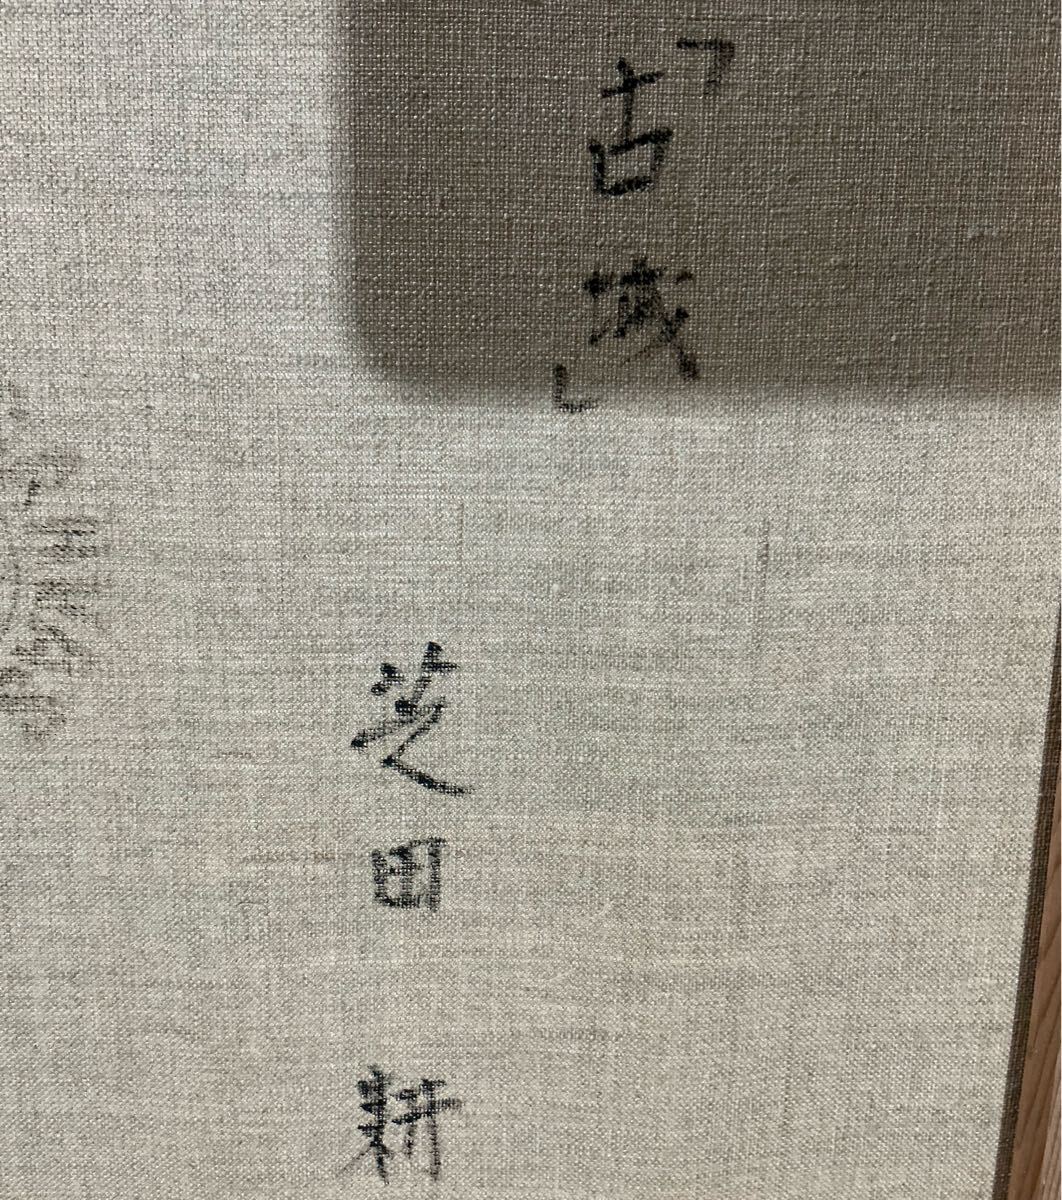 「古城」
芝田耕